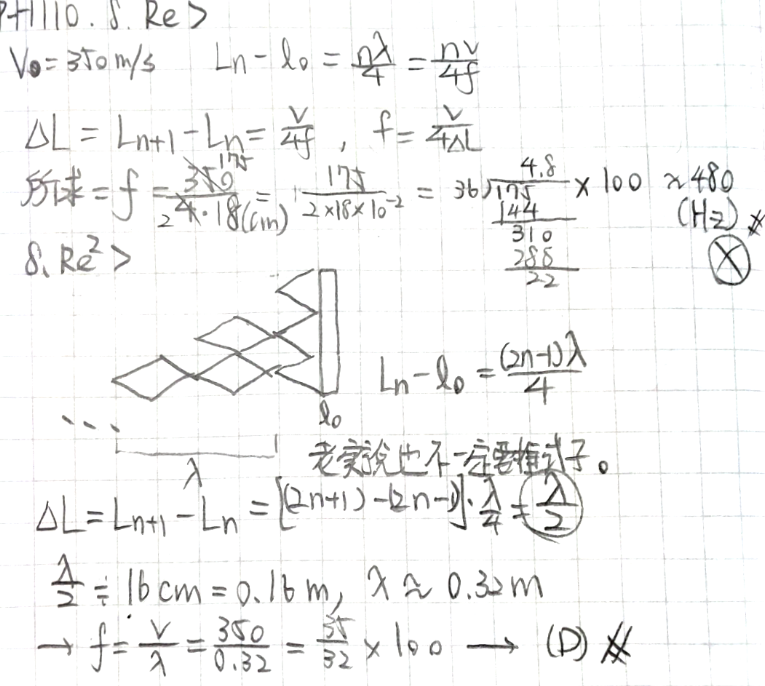 P+1110. 8. Re>
V₀=350m/s  Ln - l₀ = nλ/4 = nv/4f
ΔL = Ln+1 - Ln = v/4f , f = v/4ΔL
所求 = f = 350/4·18(cm) 175 2 = 175/2×18×10⁻² = 36)175 4.8 × 100 ≈ 480 (Hz) ※
144
310
288
22
8. Re²>
Ln - l₀ = (2n-1)λ/4
l₀
...
λ
老實說也不一定要推式子。
ΔL = Ln+1 - Ln = [(2n+1) - (2n-1)]·λ/4 = λ/2
λ/2 ≒ 16cm = 0.16m, λ ≈ 0.32m
→ f = v/λ = 350/0.32 = 35/32 × 100 → (D) ※